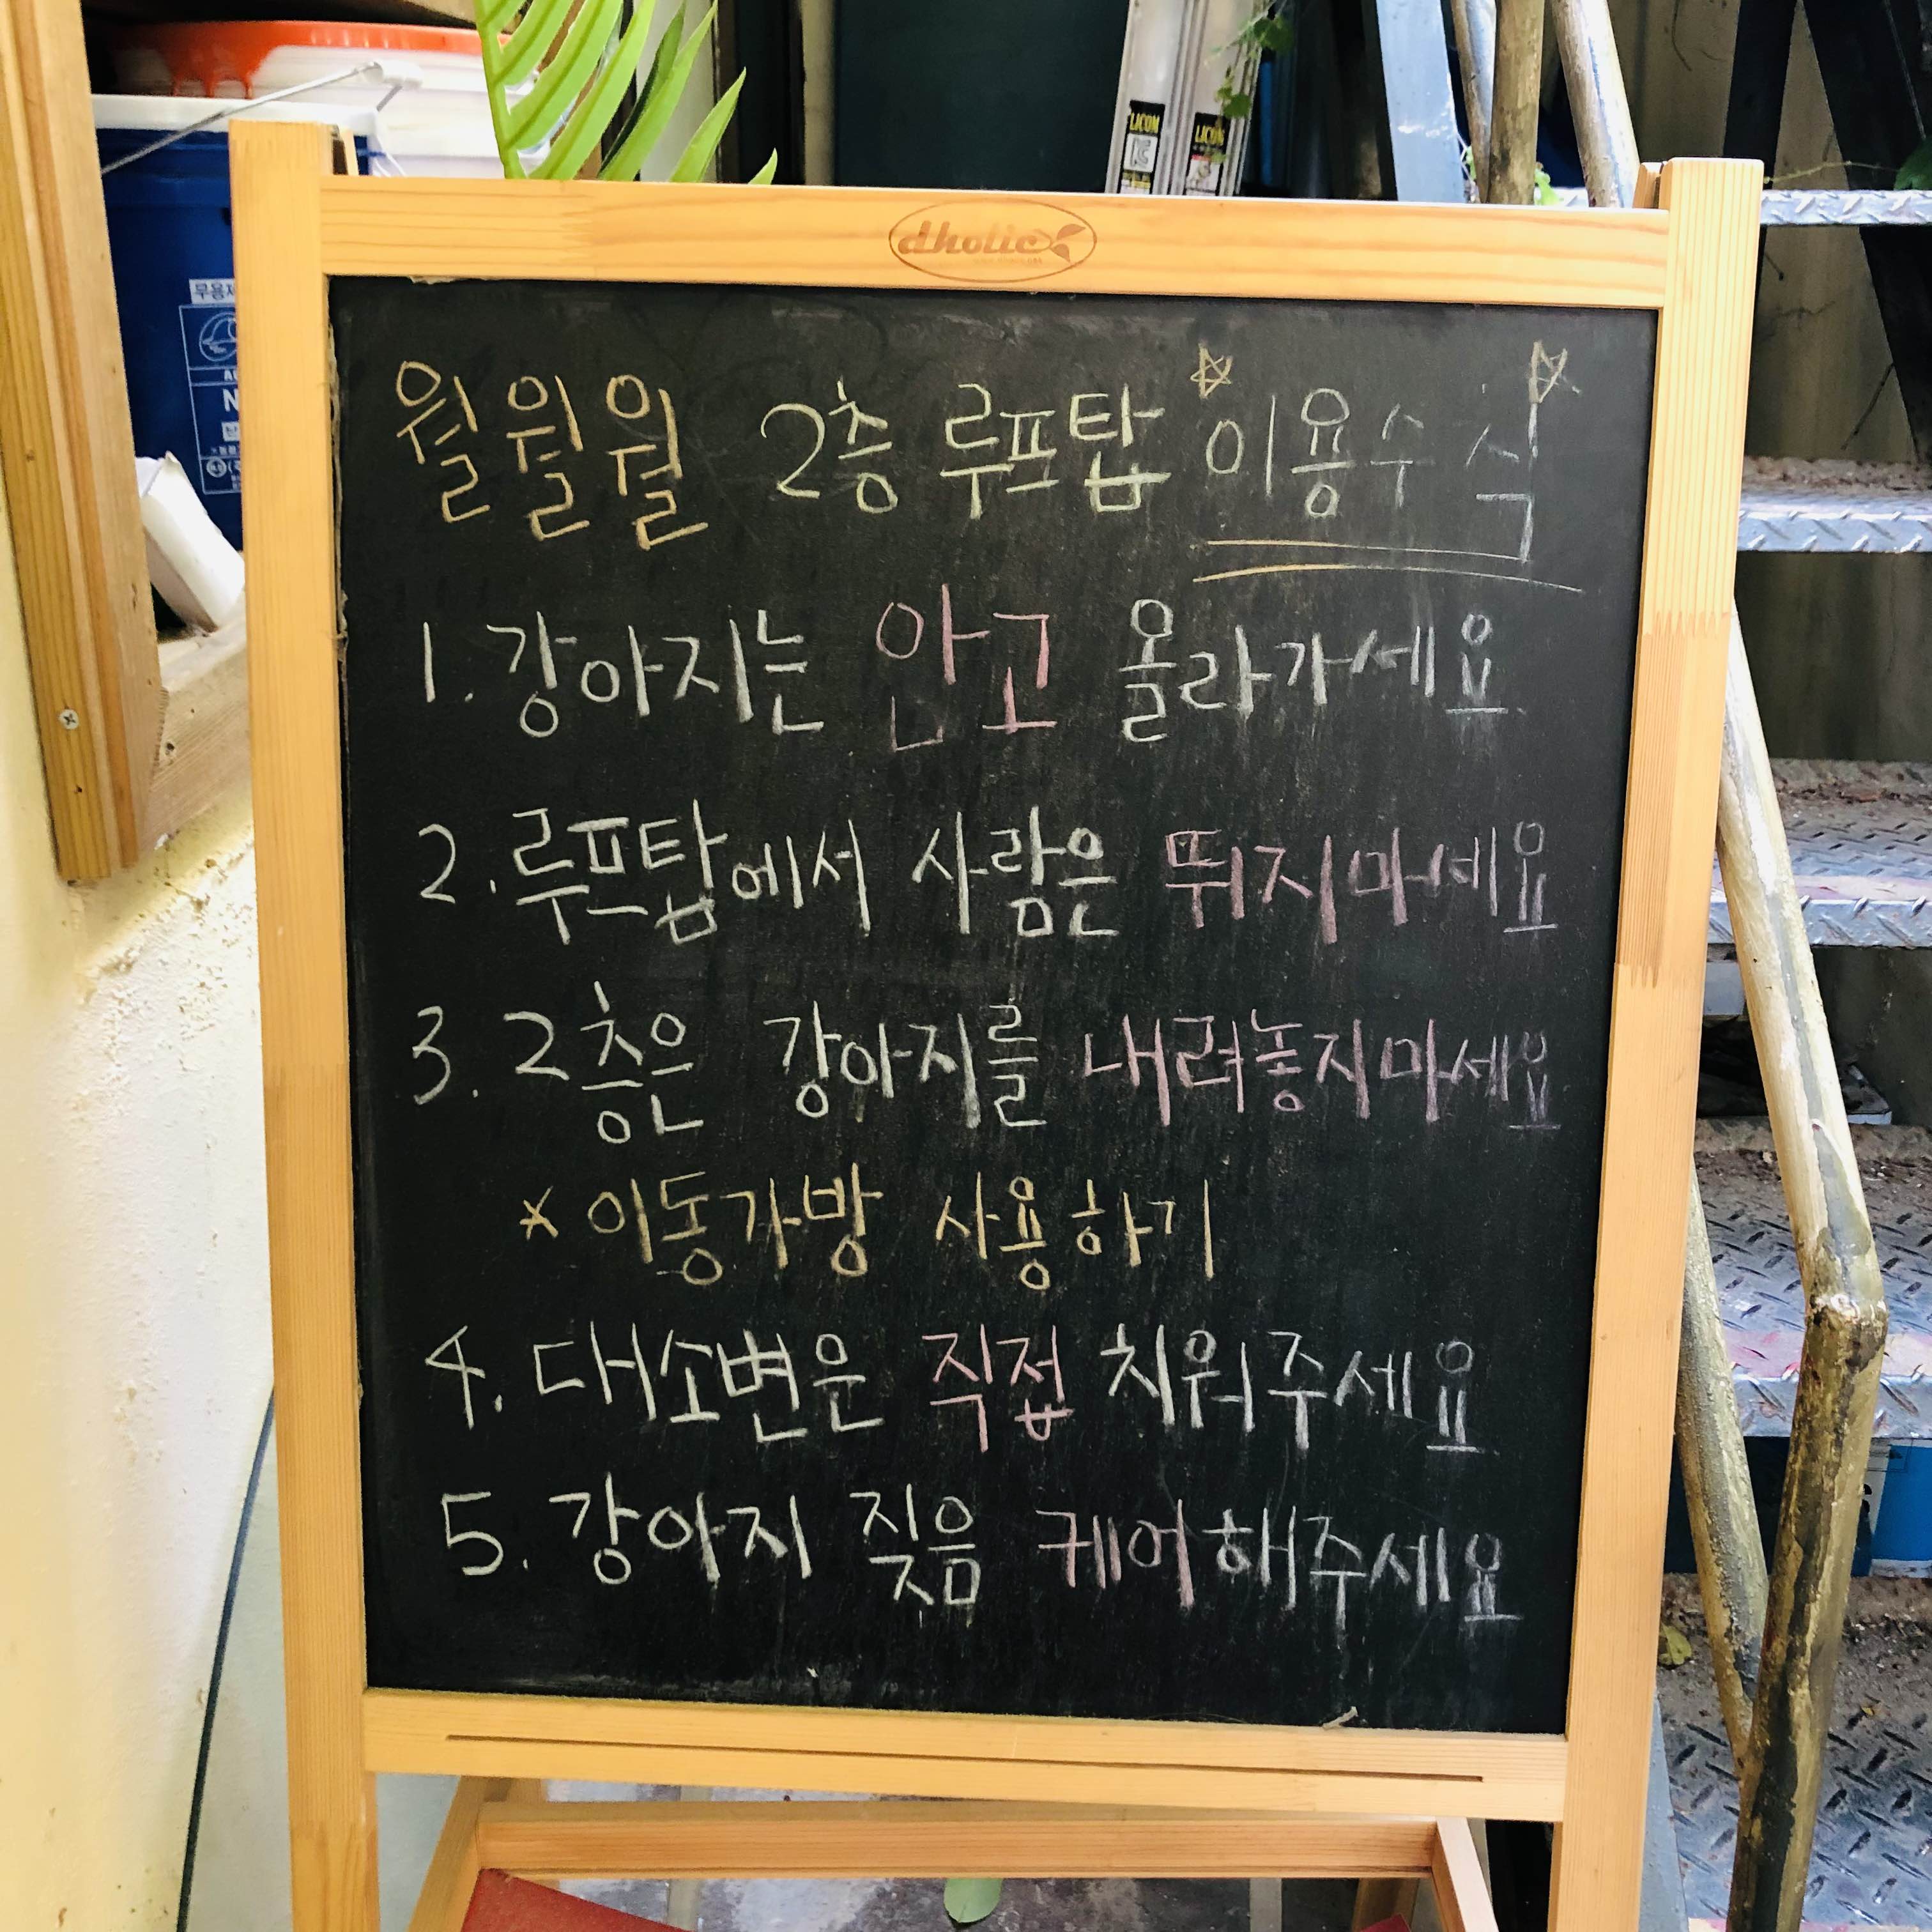 LICOM
LICON
dholic
무용제
월월월 2층 루프탑 이용수식
1. 강아지는 안고 올라가세요
2. 루프탑에서 사람은 뛰지마세요
3. 2층은 강아지를 내려놓지마세요
* 이동가방 사용하기
4. 대소변은 직접 치워주세요
5. 강아지 짖음 케어해주세요